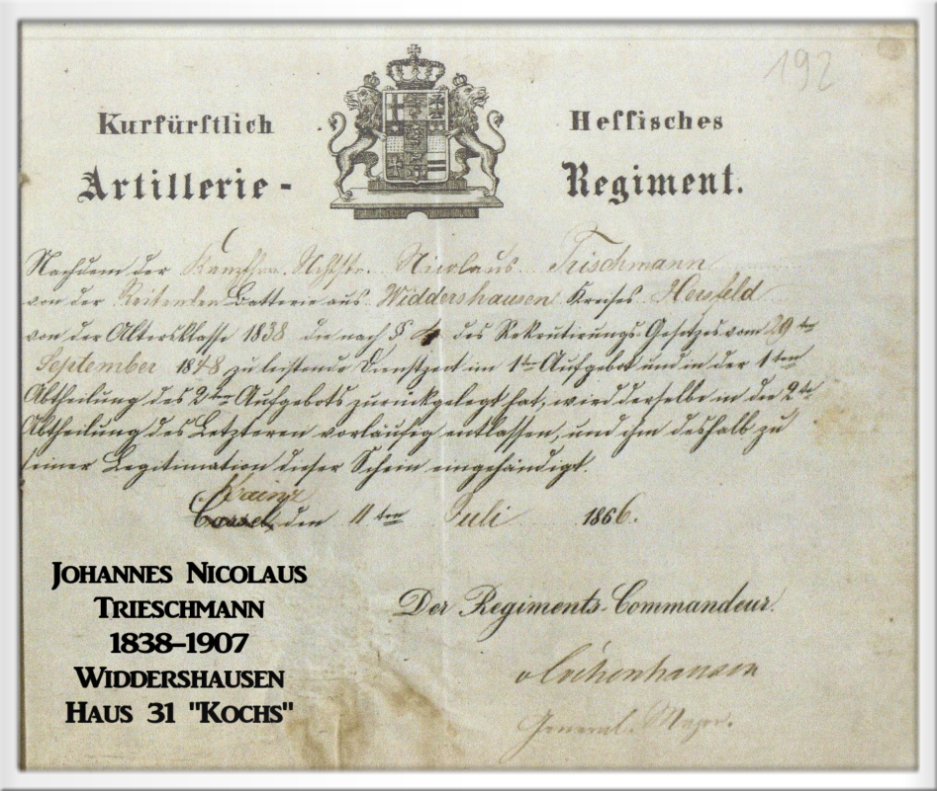 192
Kurfürstlich Hessisches
Artillerie - Regiment.
Nachdem der Nicolaus Trischmann
von der Reitenden Batterie aus Widdershausen Kreises Hersfeld
von der Altersklasse 1838 die nach § 4 des Rekrutirungs-Gesetzes vom 29ten
September 1848 zu leistende Dienstzeit im 1ten Aufgebot und in der 1ten
Abtheilung des 2ten Aufgebots zurückgelegt hat, wird derselbe in die 2te
Abtheilung des Letzteren vorläufig entlassen, und ihm deshalb zu
seiner Legitimation dieser Schein eingehändigt.
Mainz
Cassel, den 11ten Juli 1866.
Der Regiments-Commandeur.
General-Major.
JOHANNES NICOLAUS
TRIESCHMANN
1838–1907
WIDDERSHAUSEN
HAUS 31 "KOCHS"